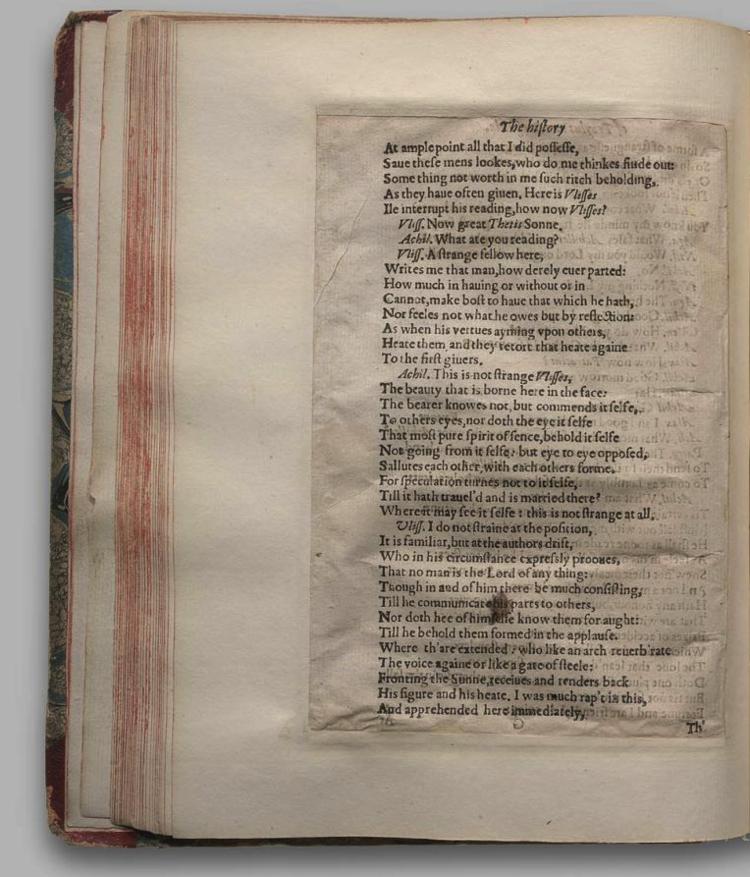 The hiſtory
At ample point all that I did poſſeſſe,
Saue theſe mens lookes, who do me thinkes finde out
Some thing not worth in me ſuch ritch beholding,
As they haue often giuen. Here is Vliſſes
Ile interrupt his reading, how now Vliſſes?
Vliſſ. Now great Thetis Sonne.
Achil. What are you reading?
Vliſſ. A ſtrange fellow here,
Writes me that man, how derely euer parted:
How much in hauing or without or in
Cannot, make boſt to haue that which he hath,
Nor feeles not what he owes but by reflection:
As when his vertues ayming vpon others,
Heate them, and they retort that heate againe
To the firſt giuers.
Achil. This is not ſtrange Vliſſes,
The beauty that is borne here in the face:
The bearer knowes not, but commends it ſelfe,
To others eyes, nor doth the eye it ſelfe
That moſt pure ſpirit of ſence, behold it ſelfe
Not going from it ſelfe: but eye to eye oppoſed,
Sallutes each other, with each others forme.
For ſpeculation turnes not to it ſelfe,
Till it hath trauel'd and is married there?
Where it may ſee it ſelfe: this is not ſtrange at all.
Vliſſ. I do not ſtraine at the poſition,
It is familiar, but at the authors drift,
Who in his circumſtance expreſſly prooues,
That no man is the Lord of any thing:
Though in and of him there be much conſiſting,
Till he communicate his parts to others,
Nor doth hee of himſelfe know them for aught:
Till he behold them formed in the applauſe.
Where th'are extended: who like an arch reuerb'rate
The voice againe or like a gate of ſteele:
Fronting the Sunne, receiues and renders back
His figure and his heate. I was much rap't in this,
And apprehended here immediately,
Th'